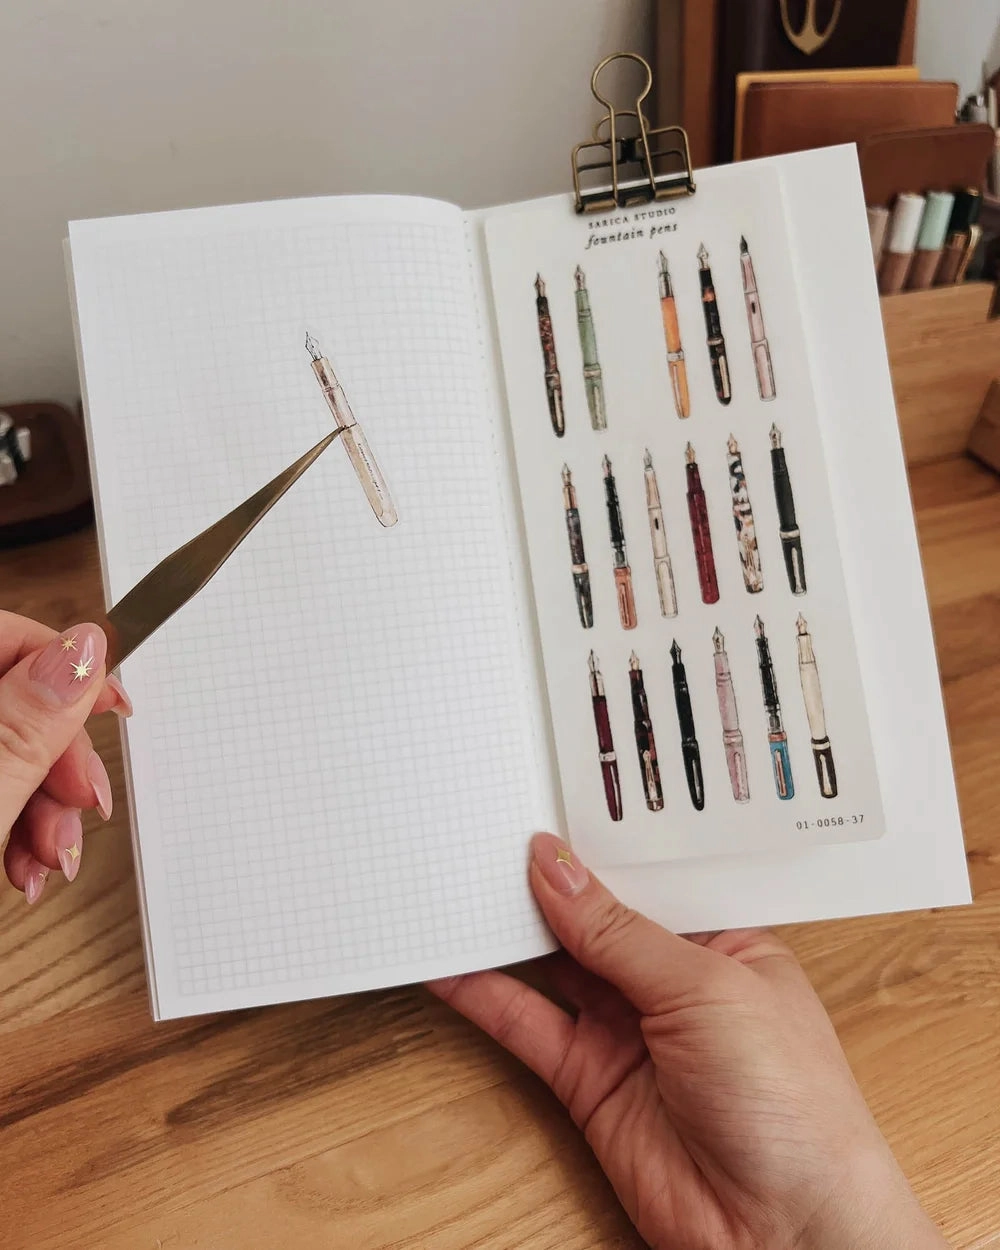 SARICA STUDIO
fountain pens
01-0058-37